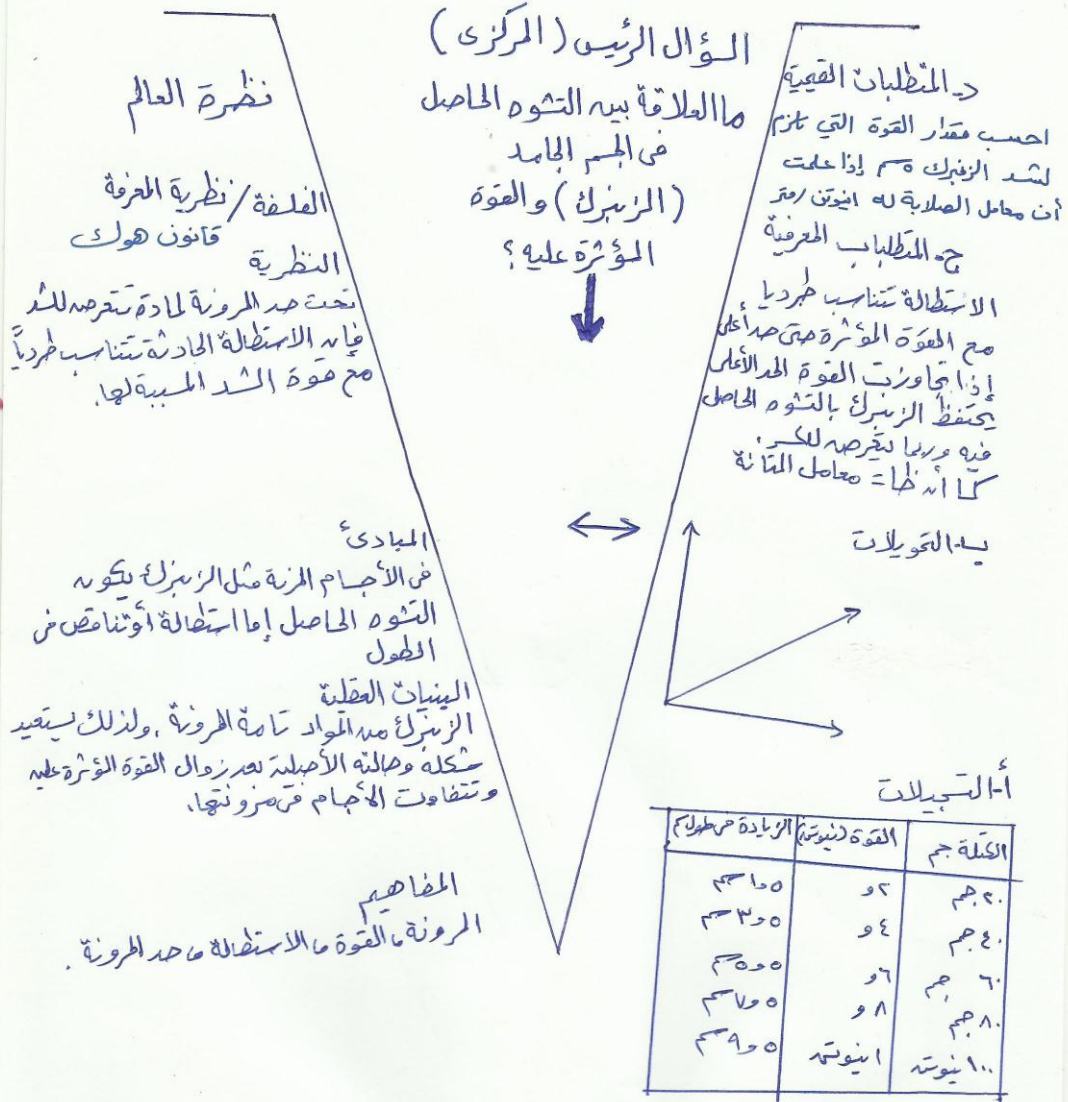 السؤال الرئيس (المركزى)
ما العلاقة بين التشوه الحاصل
فى الجسم الجامد
(الزنبرك) والقوة
المؤثرة عليه؟
نظرة العالم
الفلسفة/نظرية المعرفة
قانون هوك
النظرية
تحت حد المرونة لمادة تتعرض للشد
فإن الاستطالة الحادثة تتناسب طردياً
مع قوة الشد المسببة لها.
المبادئ
فى الأجسام المرنة مثل الزنبرك يكون
التشوه الحاصل إما استطالة أو تناقص فى
الطول
البنيات العقلية
الزنبرك من المواد تامة المرونة، ولذلك يستعيد
شكله وحالته الأصلية بعد زوال القوة المؤثرة عليه
وتتفاوت الأجسام فى مرونتها.
المفاهيم
المرونة، القوة، الاستطالة، حد المرونة.
د- المتطلبات القيمية
احسب مقدار القوة التي تلزم
لشد الزنبرك ٥سم إذا علمت
أن معامل الصلابة له ١نيوتن/متر
ج- المتطلبات المعرفية
الاستطالة تتناسب طرديا
مع القوة المؤثرة حتى حد أعلى
إذا تجاوزت القوة الحد الأعلى
يحتفظ الزنبرك بالتشوه الحاصل
فيه وربما يتعرض للكسر.
كما أن ظا = معامل المتانة
ب- التحويلات
أ- التسجيلات
الكتلة جم | القوة (نيوتن) | الزيادة فى طول
٢٠ جم | ٢و | ٥و١ سم
٤٠ جم | ٤و | ٥و٣ سم
٦٠ جم | ٦و | ٥و٥ سم
٨٠ جم | ٨و | ٥و٧ سم
١٠٠ نيوتن | ١ نيوتن | ٥و٩ سم